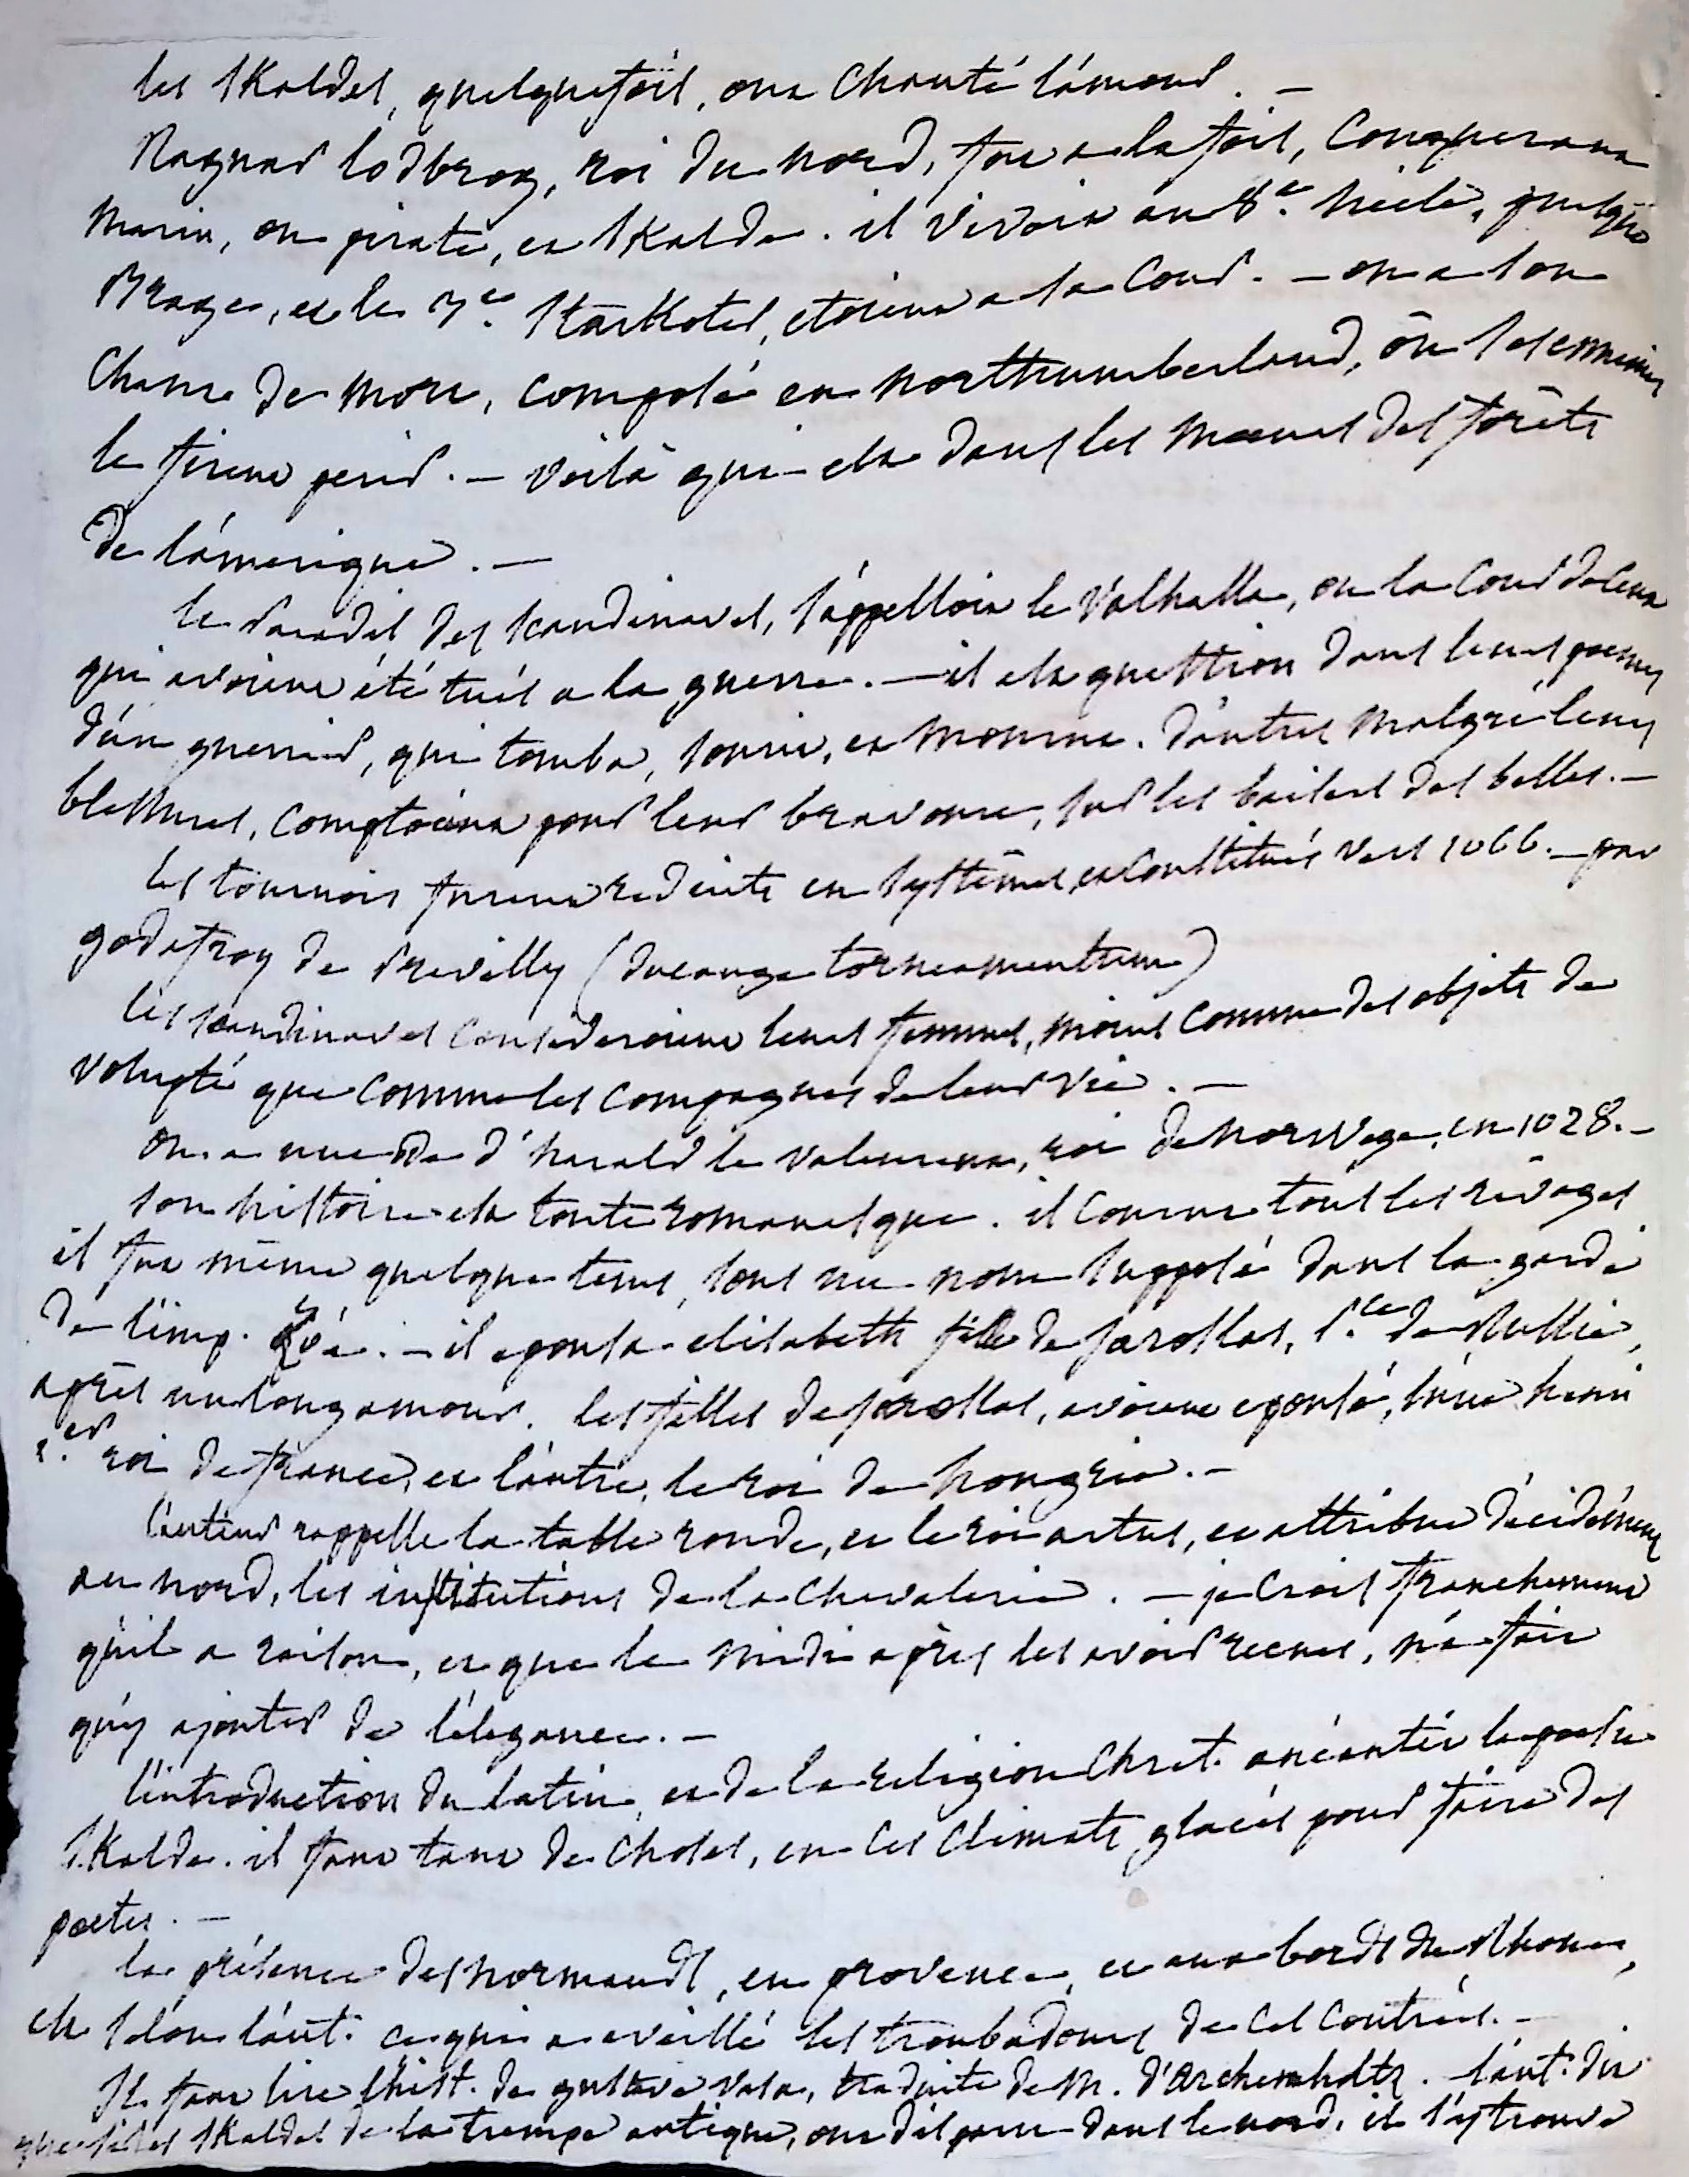 les skaldes, quelquefois, ont chanté l'amour. —
Ragnar lodbrog, roi du nord, fut a la fois, conquerant
marin, ou pirate, et skalde. il vivoit au 8.e siècle,
Brage, et le 3.e Starkoter, etoient a sa cour. — on a son
chant de mort, composé en northumberland, ou ses ennemis
le firent perir. — voilà qui est dans les mœurs des forêts
de l'amerique. —
le paradis des scandinaves, s'appelloit le Valhalla, ou la cour de ceux
qui avoient été tués a la guerre. — il est question dans leurs poemes
d'un guerrier, qui tomba, sourit, et mourut. d'autres malgré leurs
blessures, comptoient pour leur bravoure, sur les baisers des belles. —
les tournois furent reduits en systême, et constitués vers 1066. — par
godefroy de Previlly (ducange torneamentum)
les scandinaves consideroient leurs femmes, moins comme des objets de
volupté que comme les compagnes de leur vie. —
on a une ode d'harald le valeureux, roi de norwege, en 1028. —
son histoire est toute romanesque. il courut tous les rivages
il fut même quelque tems, sous un nom supposé dans la garde
de l'imp. Zoé. — il epousa elisabeth fille de jaroslas, P.ce de Russie,
après un long amour. les filles de jaroslas, avoient epousé, l'une henri
1.er roi de france, et l'autre, le roi de hongrie. —
l'auteur rappelle la table ronde, et le roi artus, et attribue décidément
au nord, les institutions de la chevalerie. — je crois franchement
qu'il a raison, et que le midi après les avoir recues, n'a fait
qu'y ajouter de l'élegance. —
l'introduction du latin, et de la religion Chret. anéantit la poesie
skalde. il faut tant de choses, en ces climats glacés pour faire des
poetes. —
la présence des normands, en provence, et aux bords du Rhone,
est selon l'aut. ce qui a eveillé les troubadours de ces contrées. —
Il faut lire l'hist. de gustave vasa, traduite de M. d'Archenholtz. — l'aut. dit
que si les skaldes de la trempe antique, ont disparu dans le nord, il s'y trouve